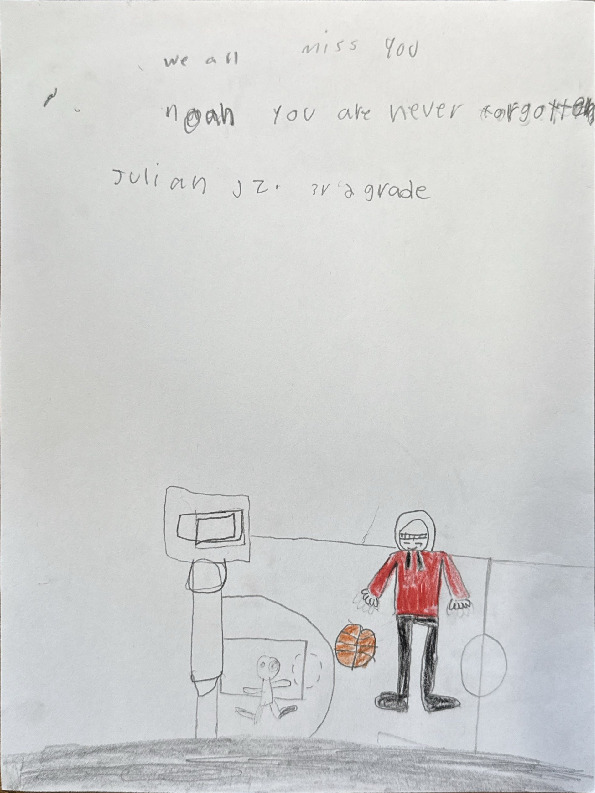 we all miss you
noah you are never forgotten
Julian JZ. 3rd grade